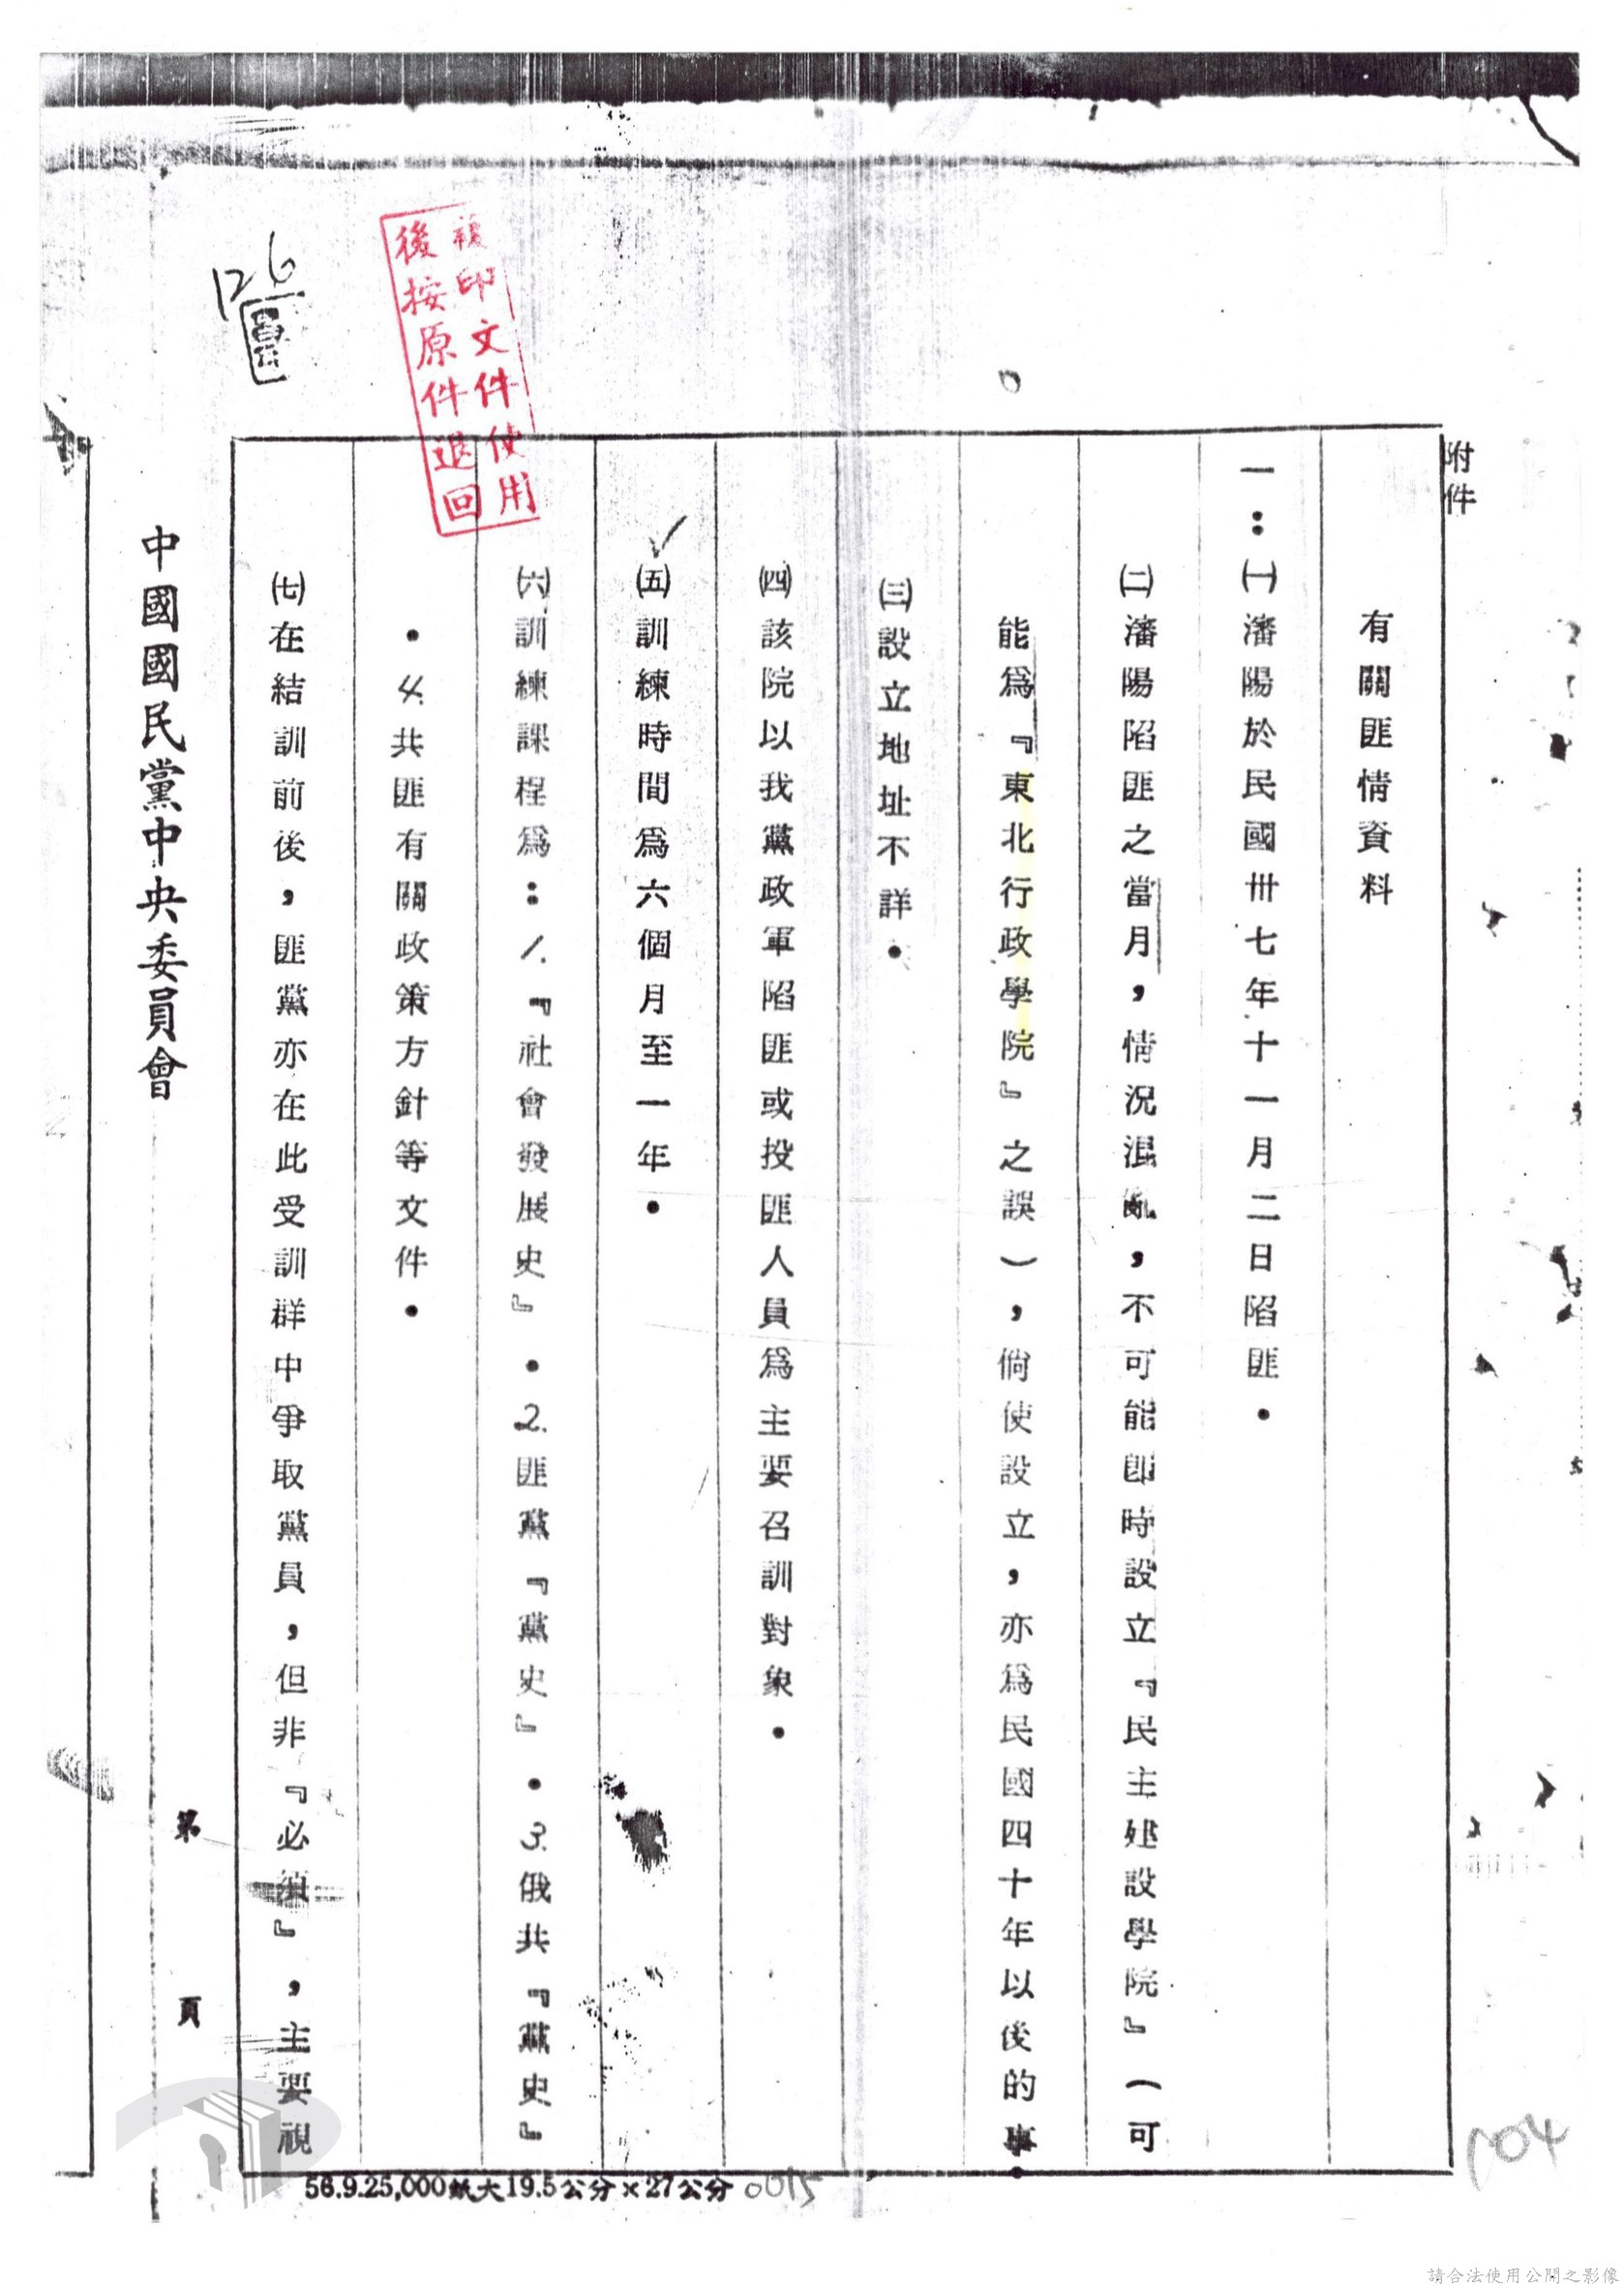 附件
有關匪情資料
一：㈠瀋陽於民國卅七年十一月二日陷匪．
㈡瀋陽陷匪之當月，情況混亂，不可能卽時設立『民主建設學院』（可
能爲『東北行政學院』之誤），倘使設立，亦爲民國四十年以後的事．
㈢設立地址不詳．
㈣該院以我黨政軍陷匪或投匪人員爲主要召訓對象．
㈤訓練時間爲六個月至一年．
㈥訓練課程爲：1.『社會發展史』．2.匪黨『黨史』．3.俄共『黨史』
．4.共匪有關政策方針等文件．
㈦在結訓前後，匪黨亦在此受訓群中爭取黨員，但非『必須』，主要視
中國國民黨中央委員會
第 頁
複印文件使用
後按原件退回
126
56.9.25,000紙大19.5公分×27公分
0015
004
請合法使用公開之影像